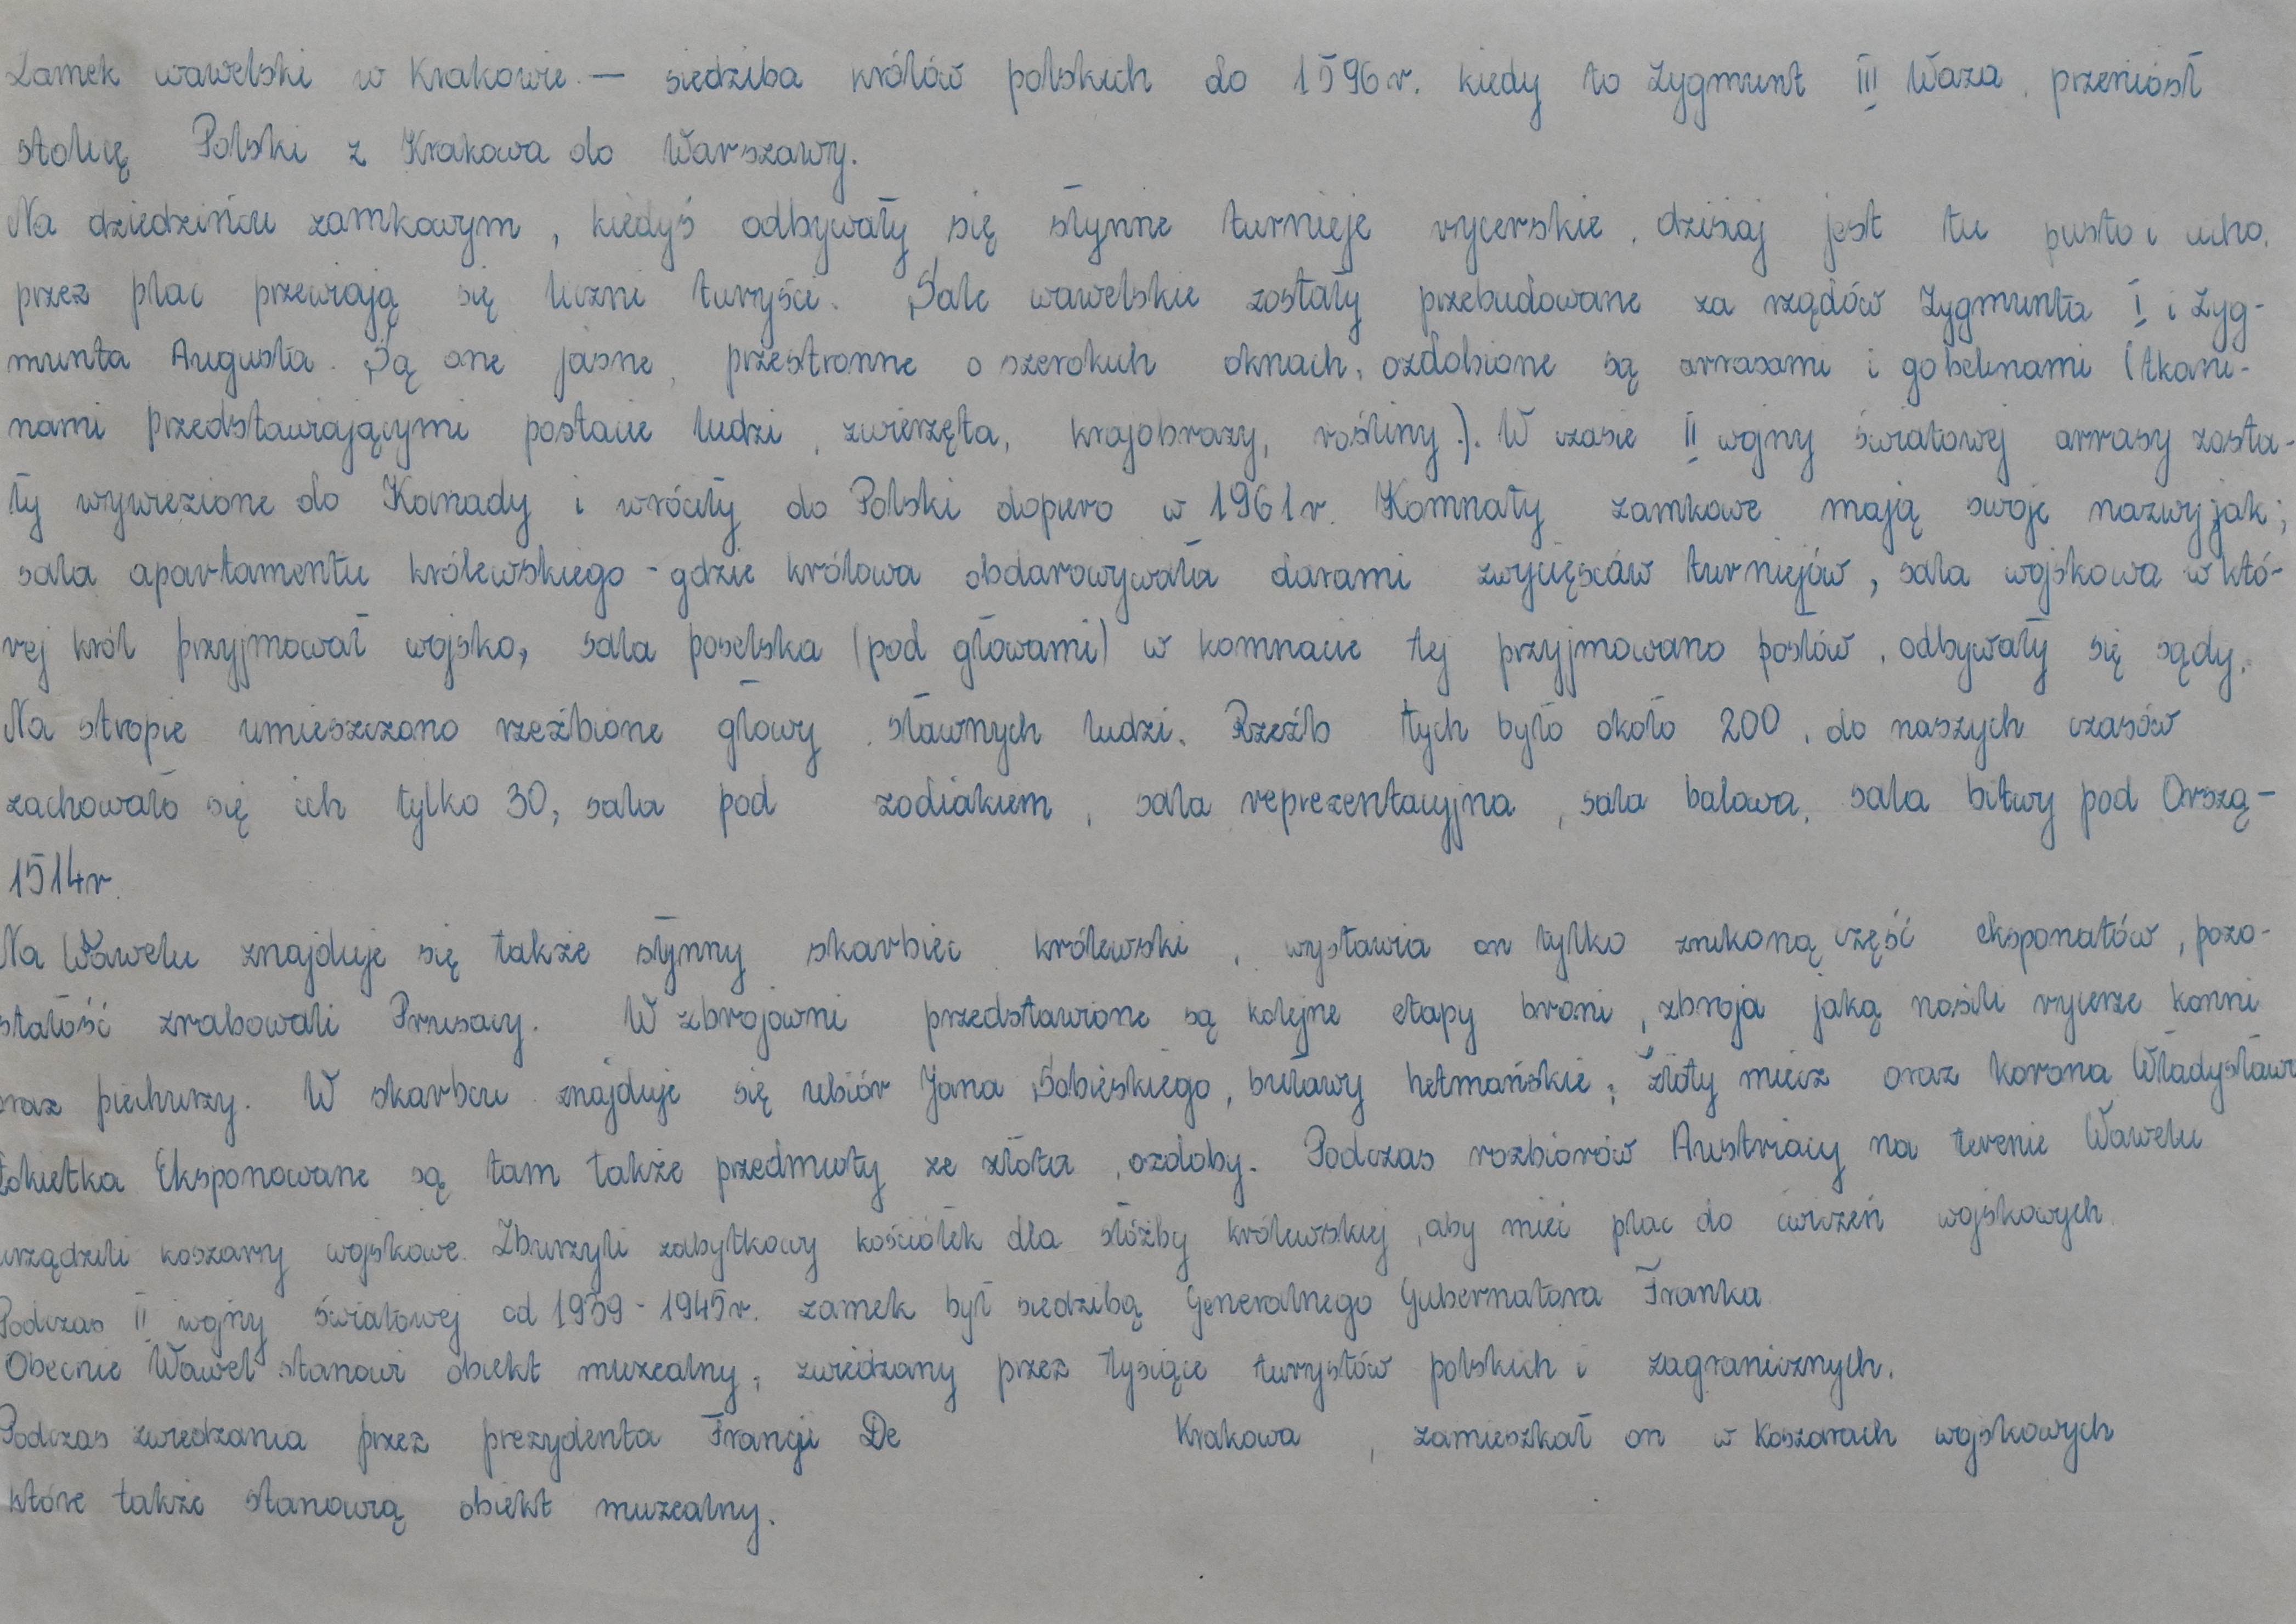 Zamek wawelski w Krakowie – siedziba królów polskich do 1596 r. kiedy to Zygmunt III Waza, przeniósł
stolicę Polski z Krakowa do Warszawy.
Na dziedzińcu zamkowym, kiedyś odbywały się słynne turnieje rycerskie, dzisiaj jest tu pusto i cicho,
przez plac przewiają się liczni turyści. Sale wawelskie zostały przebudowane za rządów Zygmunta I i Zyg-
munta Augusta. Są one jasne, przestronne o szerokich oknach, ozdobione są arrasami i gobelinami (tkani-
nami przedstawiającymi postacie ludzi, zwierzęta, krajobrazy, rośliny.). W czasie II wojny światowej arrasy zosta-
ły wywiezione do Kanady i wróciły do Polski dopiero w 1961 r. Komnaty zamkowe mają swoje nazwy jak;
sala apartamentu królewskiego - gdzie królowa obdarowywała darami zwycięsców turniejów, sala wojskowa w któ-
rej król przyjmował wojsko, sala poselska (pod głowami) w komnacie tej przyjmowano posłów, odbywały się sądy.
Na stropie umieszczono rzeźbione głowy sławnych ludzi. Rzeźb tych było około 200, do naszych czasów
zachowało się ich tylko 30, sala pod zodiakiem, sala reprezentacyjna, sala balowa, sala bitwy pod Orszą –
1514 r.
Na Wawelu znajduje się także słynny skarbiec królewski, wystawia on tylko znikoną część eksponatów, pozo-
stałość zrabowali Prusacy. W zbrojowni przedstawione są kolejne etapy broni, zbroja jaką nosili rycerze konni
oraz piechurzy. W skarbcu znajduje się ubiór Jana Sobieskiego, buławy hetmańskie, złoty miecz oraz korona Władysława
Łokietka Eksponowane są tam także przedmioty ze złota, ozdoby. Podczas rozbiorów Austriacy na terenie Wawelu
urządzili koszary wojskowe. Zburzyli zabytkowy kościółek dla stóżby królewskiej, aby mieć plac do ćwiczeń wojskowych
Podczas II wojny światowej od 1939 - 1945 r. zamek był siedzibą Generalnego Gubernatora Franka
Obecnie Wawel stanowi obiekt muzealny, zwiedzany przez tysiące turystów polskich i zagranicznych.
Podczas zwiedzania przez prezydenta Francji De Krakowa, zamieszkał on w koszarach wojskowych
które także stanowią obiekt muzealny.